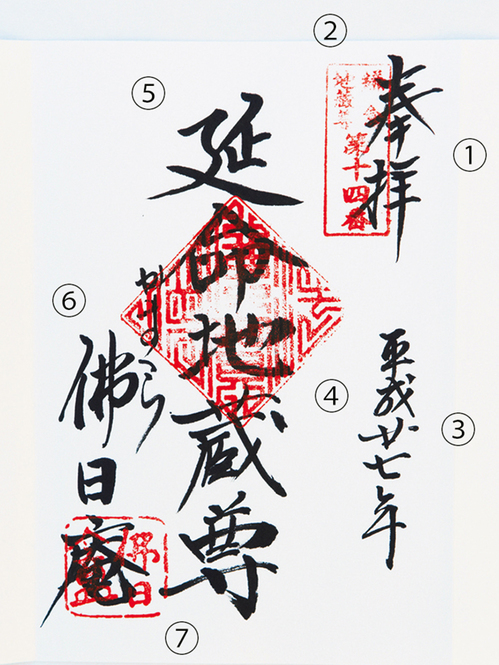 ②
①
奉拝
鎌倉
地蔵尊
第十四番
③
平成廿七年
④
⑤
延命地蔵尊
⑥
かまくら
佛日庵
佛日
⑦